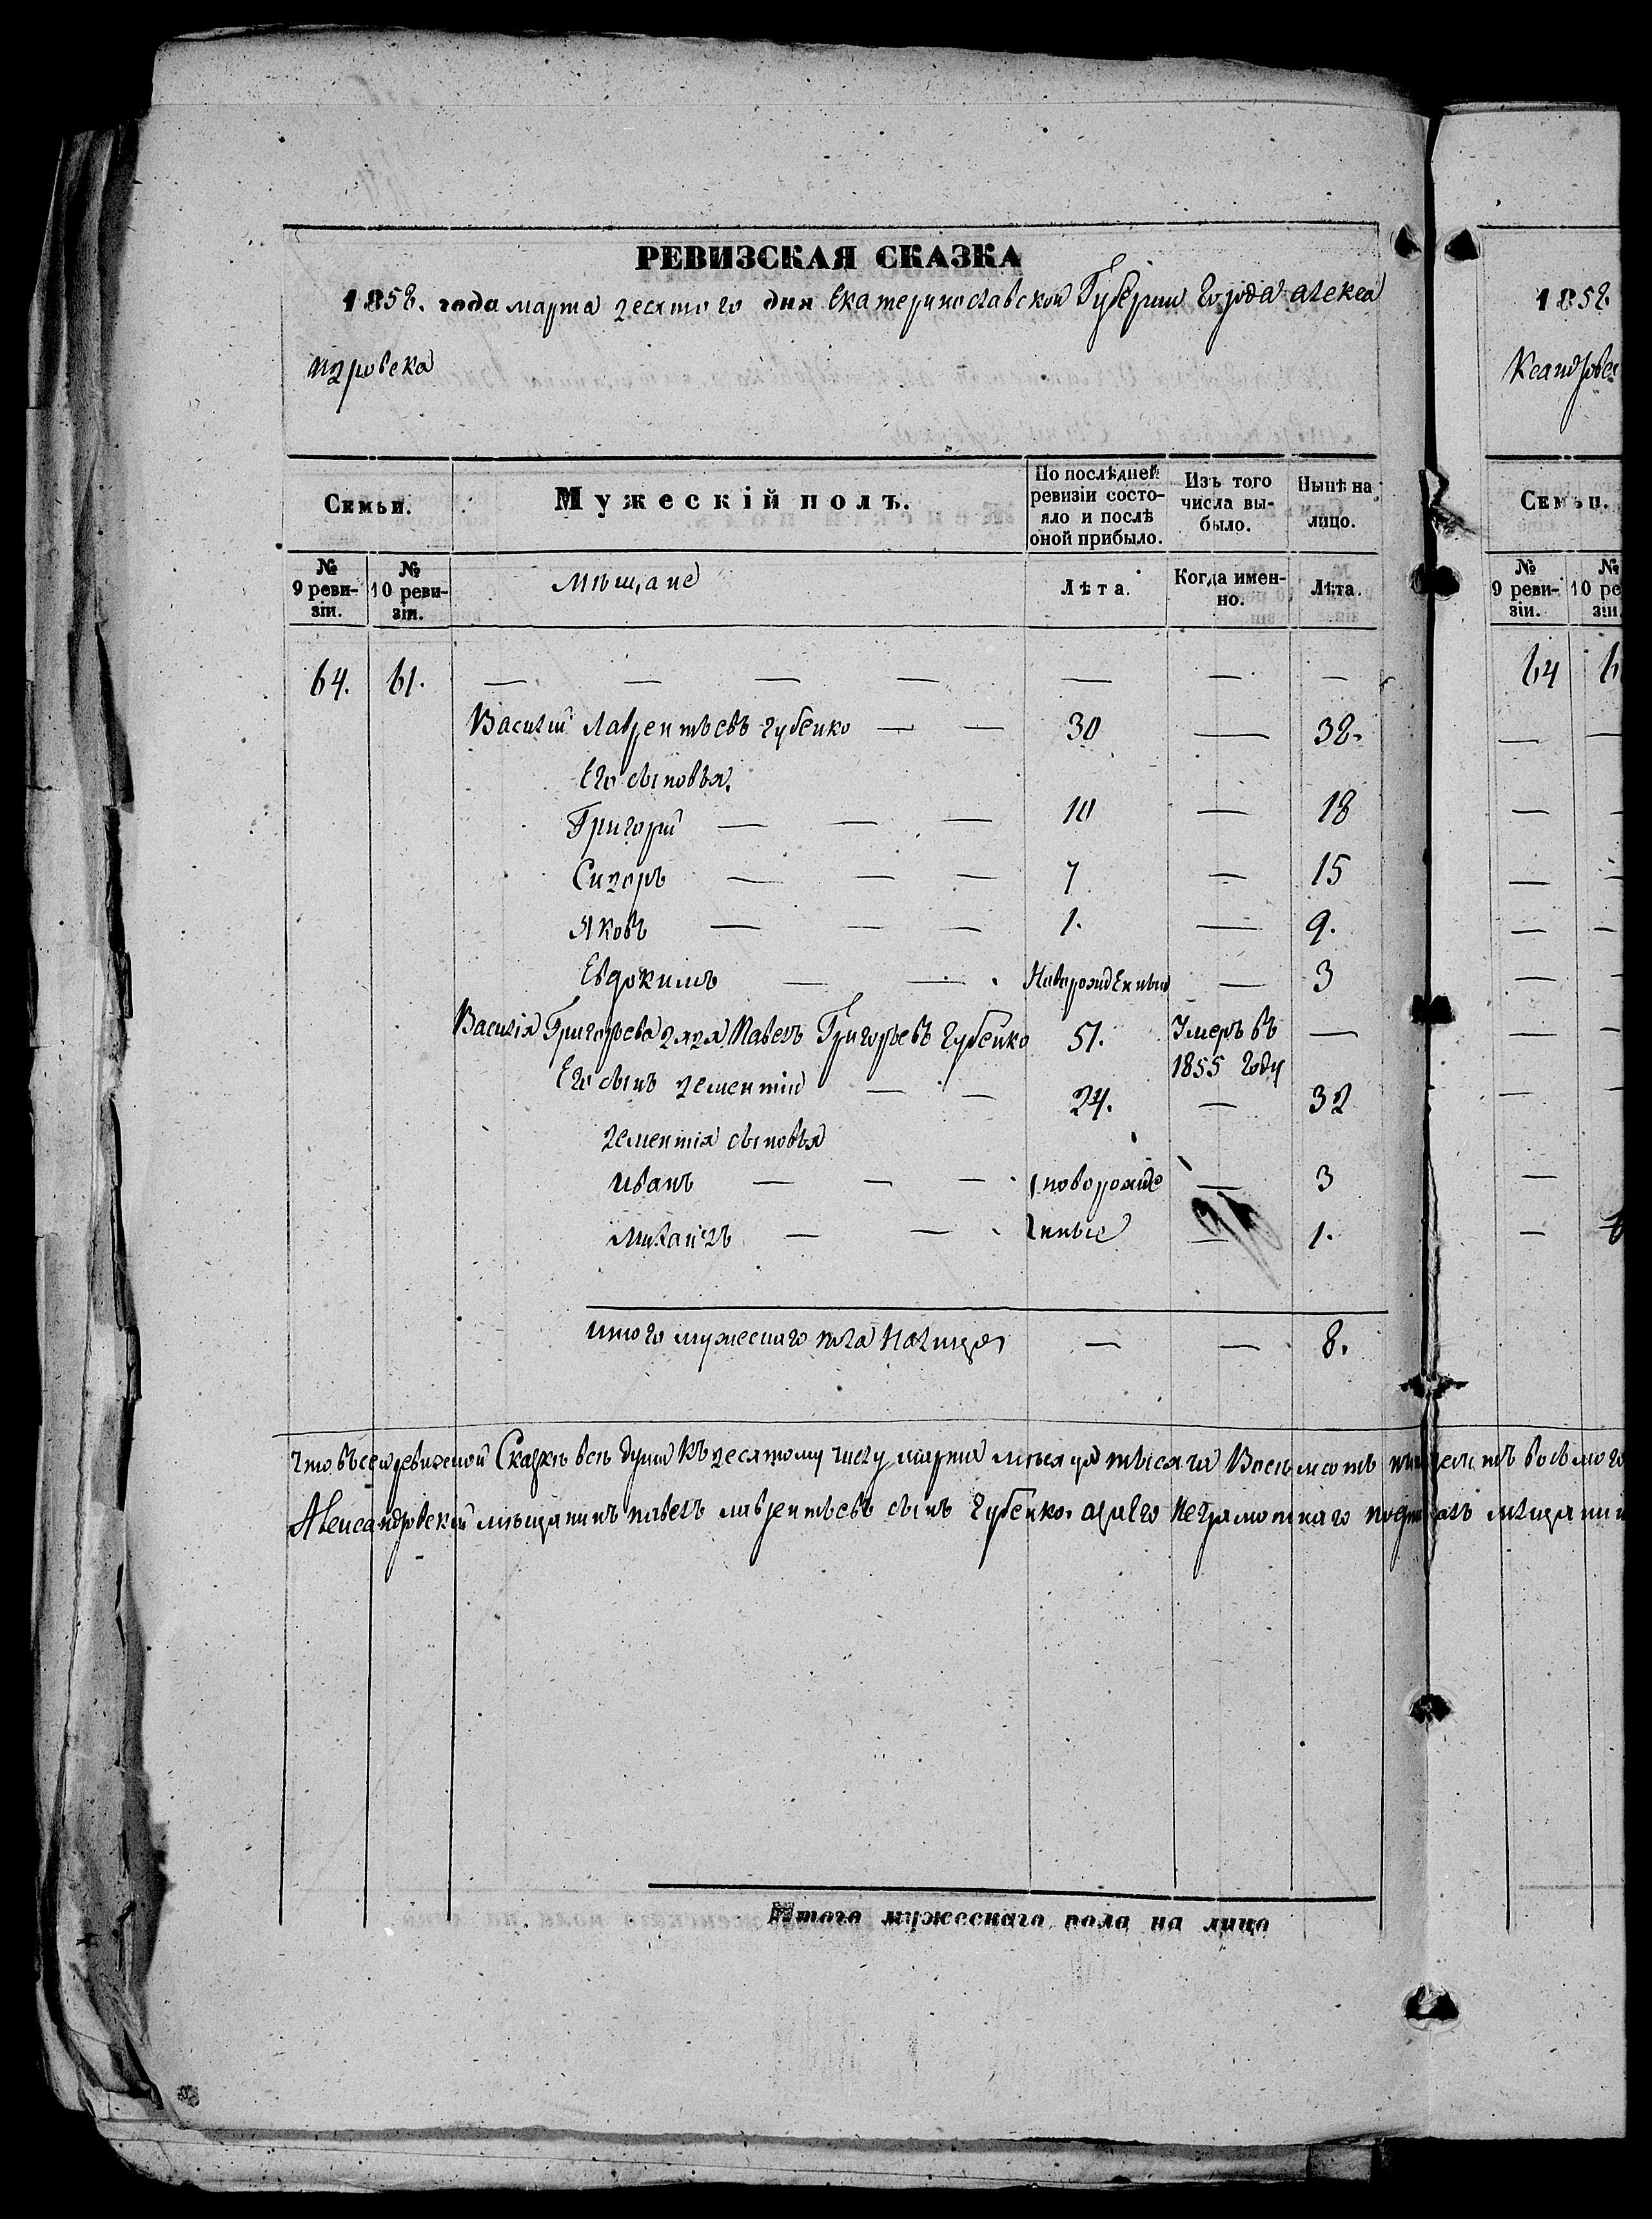 РЕВИЗСКАЯ СКАЗКА
1858. года марта десятого дня Екатеринославской Губернии Города алекса
ндровска
Семьи.
Мужескій полъ.
По послѣдней ревизіи состо-яло и послѣ оной прибыло.
Изъ того числа вы-было.
Нынѣ на лицо.
№ 9 реви-зіи.
№ 10 реви-зіи.
мѣщане
Лѣта.
Когда имен-но.
Лѣта.
64. 61. — — — — — — —
Василій Лаврентьевъ Губенко — — 30 — 38.
Его сыновья.
Григорій — — — 10 — 18
Сидоръ — — — 7 — 15
Яковъ — — — 1. — 9.
Евдокимъ — — Новорожденный — 3
Василія Григорьева дядя Павелъ Григорьевъ Губенко 51. Умеръ въ 1855 году —
Его сынъ дементій — — 24. — 32
дементія сыновья
иванъ — — — новорожде — 3
михаилъ — — нные — 1.
итого мужескаго пола налицо — — 8.
Что въ сей ревизской Сказкѣ всѣ души къ десятому числу марта мѣсяца тысяча Восемьсотъ пятдесятъ восьмого
Александровский мѣщанинъ павелъ лаврентьевъ сынъ Губенко. а за его неграмотнаго мѣщанин
Итого мужескаго пола на лицо
1858.
ксандровс
Семьи.
№ 9 реви-зіи.
№ 10 ре зіи.
64 6